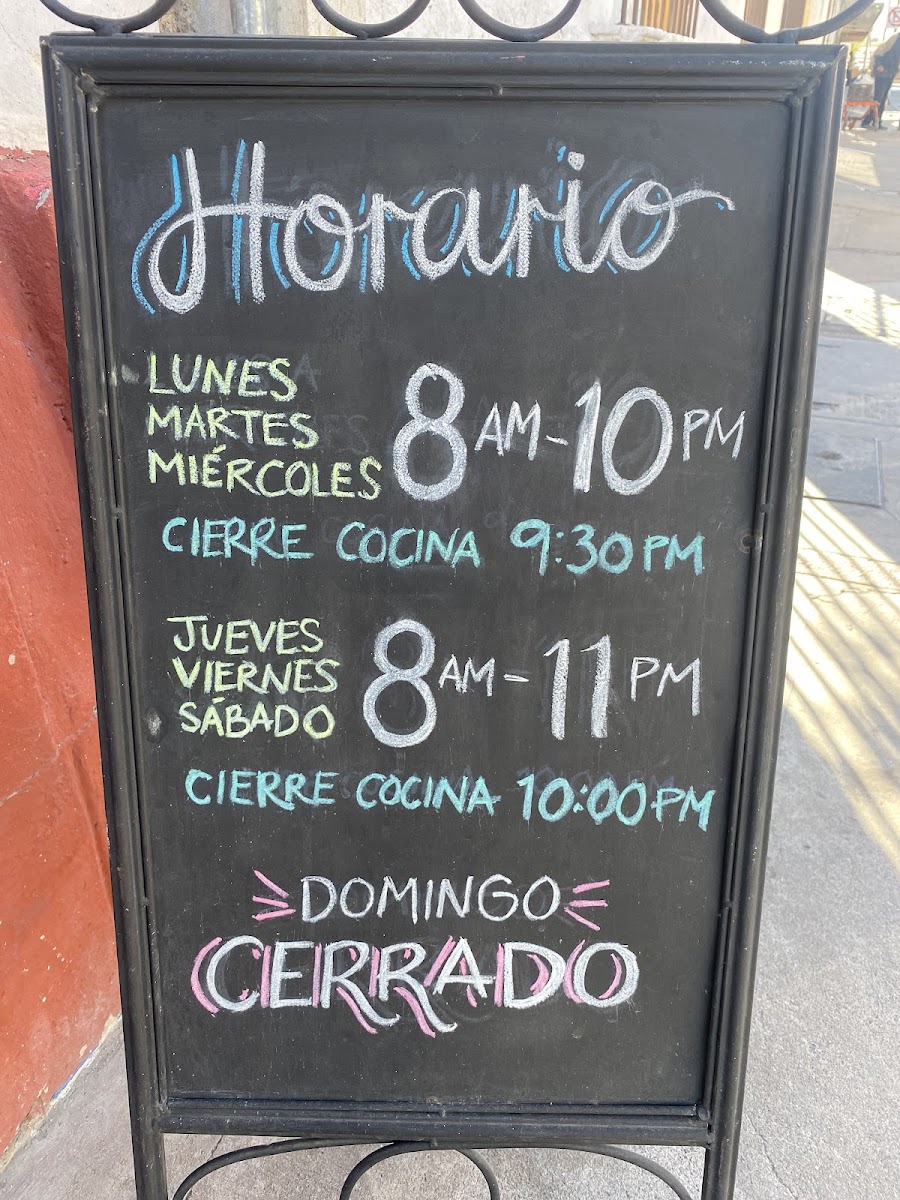 Horario
LUNES
MARTES
MIÉRCOLES
8 AM - 10 PM
CIERRE COCINA 9:30 PM
JUEVES
VIERNES
SÁBADO
8 AM - 11 PM
CIERRE COCINA 10:00 PM
DOMINGO
CERRADO